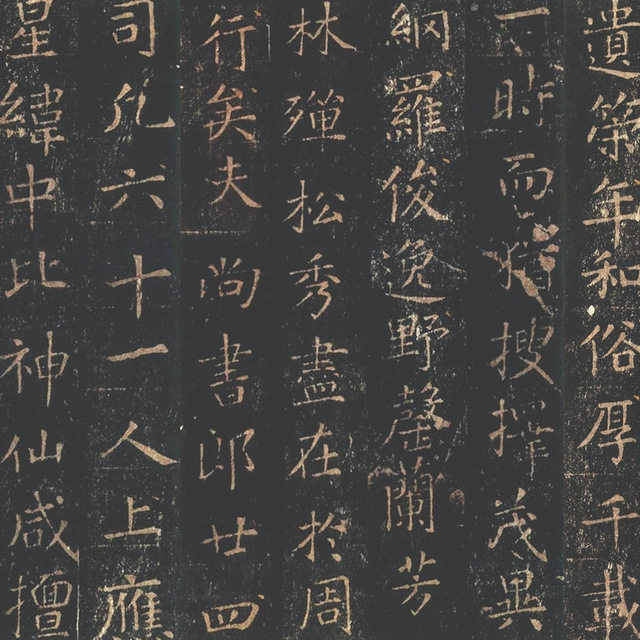 遺策年和俗厚千載
一時而猶搜擇茂異
網羅俊逸野罄蘭芳
林殫松秀盡在於周
行矣夫尚書郎廿四
司凡六十一人上應
星緯中比神仙咸擅